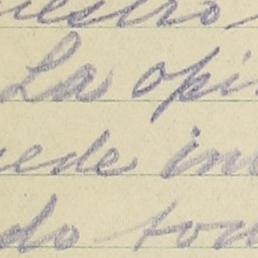 uestro
La opi
uede in
do tom